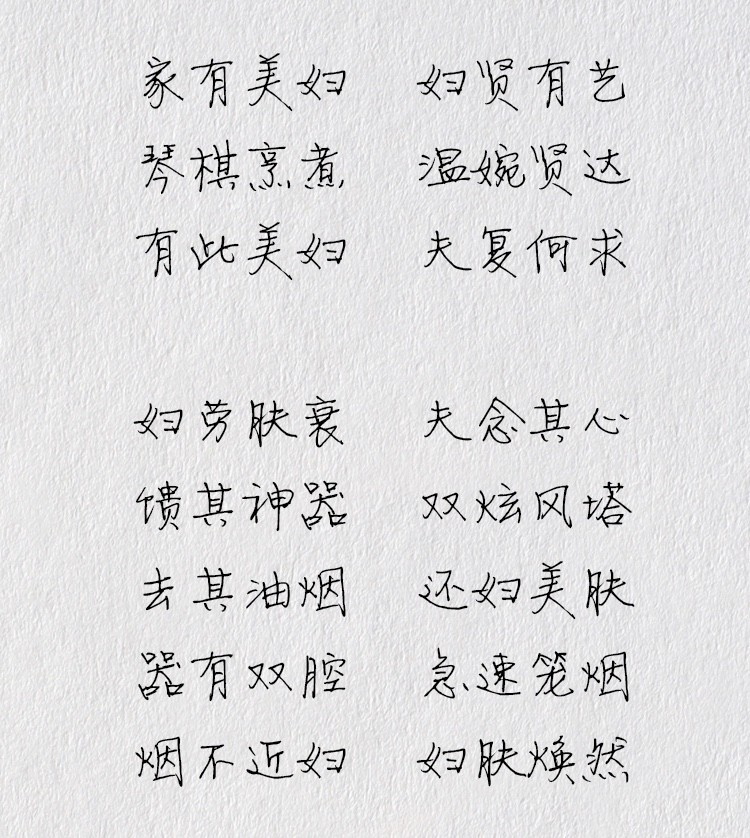 家有美妇 妇贤有艺
琴棋烹煮 温婉贤达
有此美妇 夫复何求
妇劳肤衰 夫念其心
馈其神器 双炫风塔
去其油烟 还妇美肤
器有双腔 急速笼烟
烟不近妇 妇肤焕然